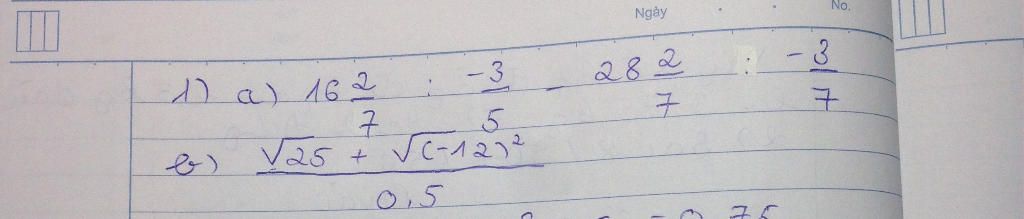 Ngày No.
1) a) 16 2/7 : -3/5 - 28 2/7 : -3/7
b) (√25 + √(-12)²)/0,5
= 0,75